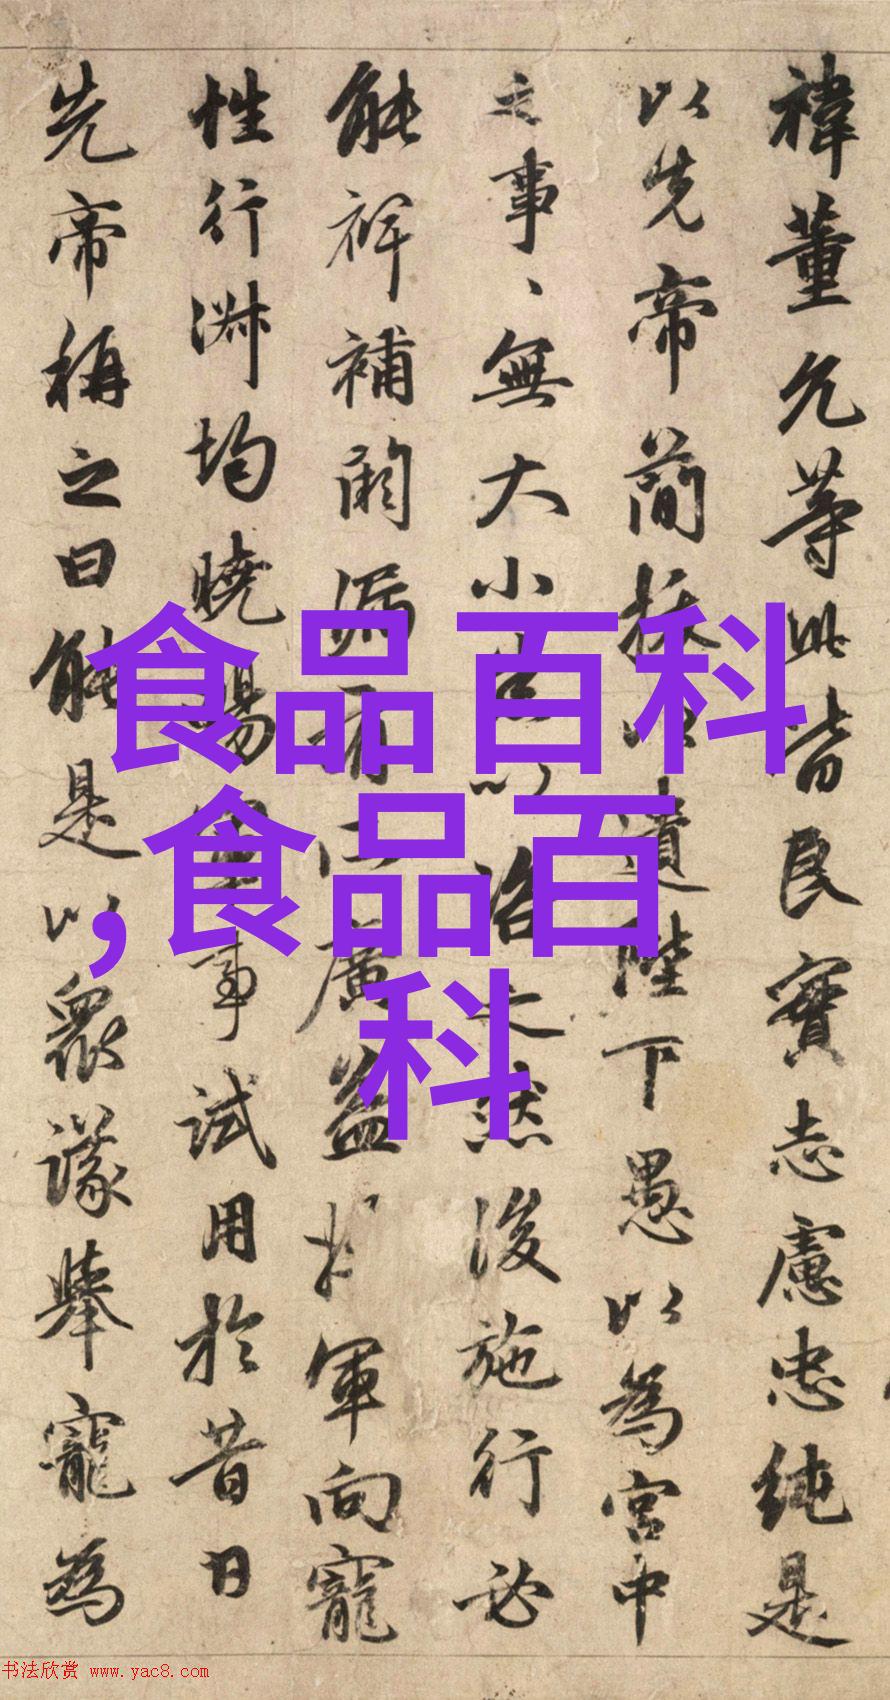 禕董允等此皆良實志慮忠純是
以先帝簡拔以遺陛下愚以為宮中
之事、、無大小悉以咨之然後施行必
能裨補闕漏有所廣益將軍向寵
性行淑均曉暢軍事試用於昔日
先帝稱之曰能是以眾議舉寵為
食品百科
,食品百
科
书法欣赏 www.yac8.com